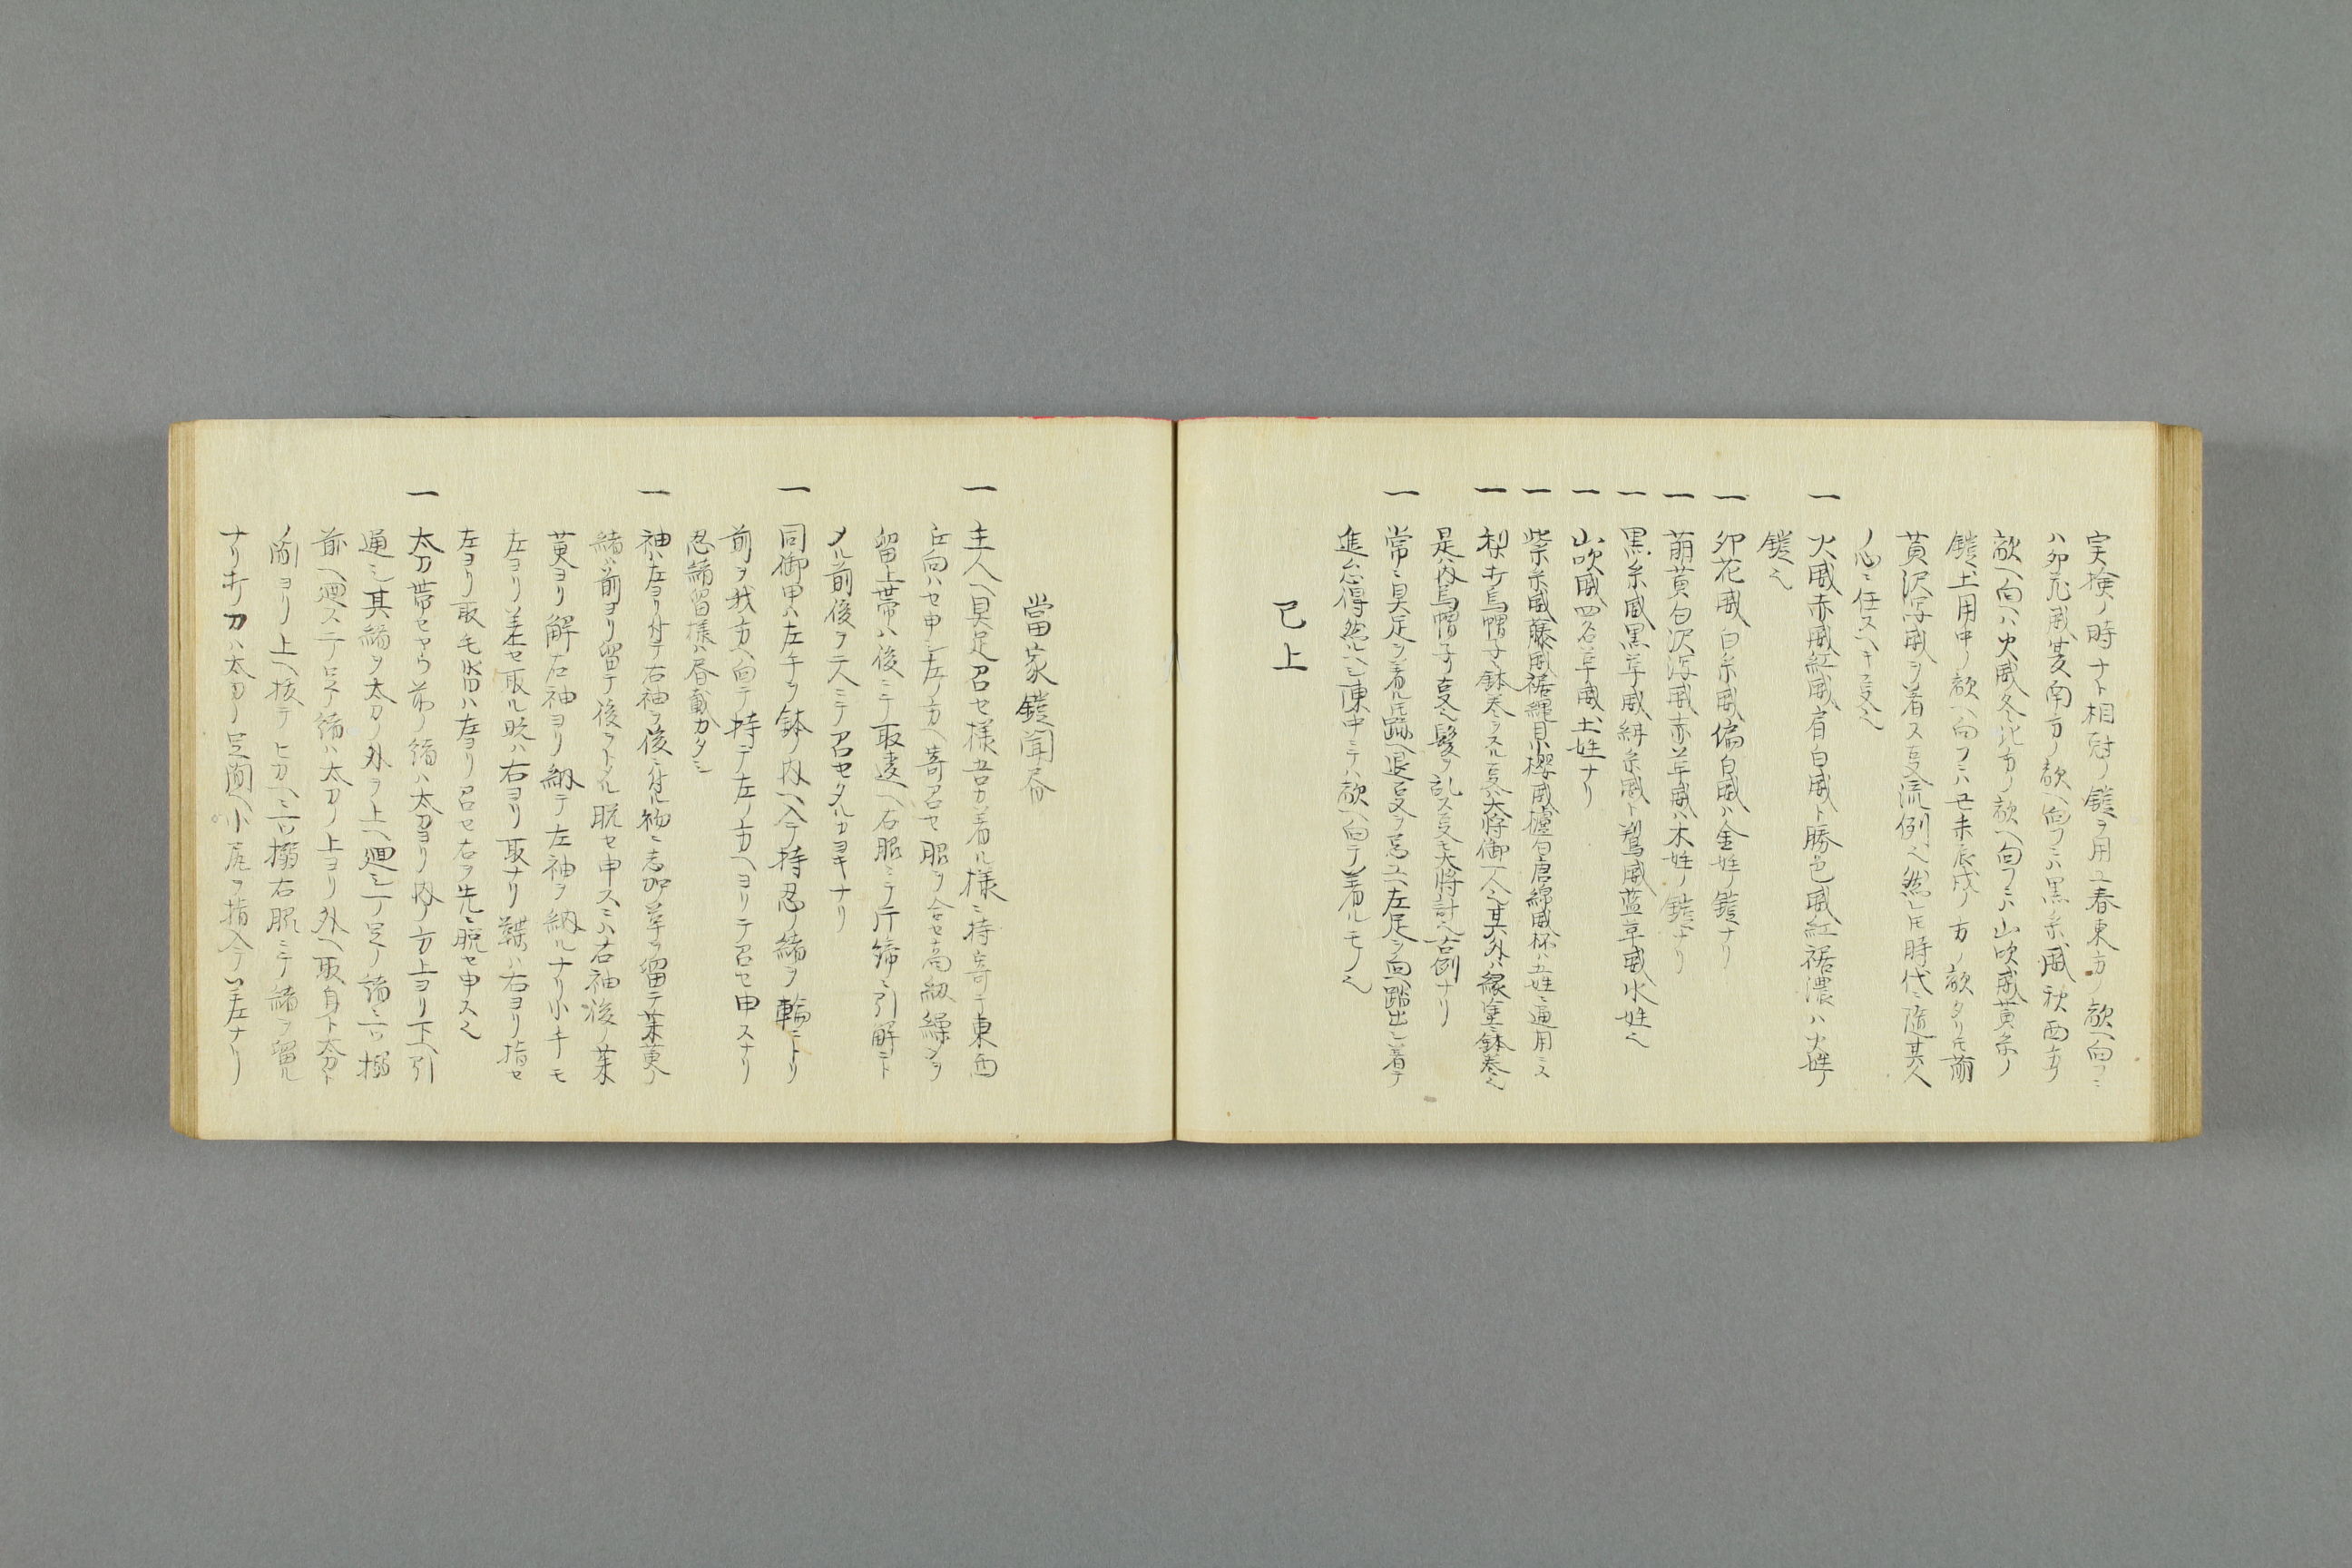 実検ノ時ナト相尅ノ鎧ヲ用ユ春東方ノ敵ヘ向フニ
ハ卯花威夏南方ノ敵ヘ向フニハ黒糸威秋西方ノ
敵ヘ向ハ火威冬北方ノ敵ヘ向フニハ山吹威黄糸ノ
鎧土用中ノ敵ヘ向フニハ丑未辰戌ノ方ノ敵タリ𪜈萠
黄沢写威ヲ着ス叓流例也然レ𪜈時代ニ隨其人
ノ心ニ任スヘキ叓也
一 火威赤威紅威肩白威ト勝色威紅裾濃ハ火姓ノ
鎧也
一 卯花威白糸威偏白威ハ金姓ノ鎧ナリ
一 萠黄匂沢瀉威赤革威ハ木姓ノ鎧ナリ
一 黒糸威黒革威紺糸威ト鵥威藍革威水姓也
一 山吹威四名革威土姓ナリ
一 紫糸威藤威裾縄目小櫻威櫨匂唐綿威杯ハ五姓ニ通用ニス
一 梨打烏帽子ニ鉢巻ヲスル叓ハ大将御一人也其外ハ縁塗ニ鉢巻也
是ハ内烏帽子ノ叓也髪ヲ乱ス叓モ大将計也古例ナリ
一 常ニ具足ヲ着ルニ𪜈踊ヘ退叓ヲ忌ユヘ左足ヲ向ヘ踏出シ着テ
進ム心得然ルヘシ陳中ニテハ敵ヘ向テ着ルモノ也
已上
當家鎧聞昏
一 主人ヘ具足召セ様吾カ着ル様ニ持寄テ東西
丘向ハセ申シ左ノ方ヘ寄召セ服ヲ合セ高紐繰シヲ
留上帯ハ後ニテ取違ヘ右服ニテ片締ニ引解ニト
メル前後ヲ二人ニテ召セタルカヨキナリ
一 同御甲ハ左手ヲ鉢ノ内ヘ入テ持忍ノ緒ヲ輪ニトリ
前ヲ我方ヘ向テ持テ左ノ方ヘヨリテ召セ申スナリ
忍緒留様ハ昏載カタシ
一 袖ハ左ヨリ付テ右袖ヲ後ニ付ル袖ニ志加革ヲ留テ茱萸ノ
緒ハ前ヨリ留テ後ヲトメル脱セ申スニハ右袖後ノ茱
萸ヨリ解右袖ヨリ納テ左袖ヲ納ルナリ小手モ
左ヨリ差セ取ル時ハ右ヨリ取ナリ鞢ハ右ヨリ指セ
左ヨリ取毛沓ハ左ヨリ召セ右ヲ先ニ脱セ申ス也
一 太刀帯セヤウ第ノ緒ハ太刀ヨリ内ノ方上ヨリ下ヘ引
通シ其緒ヲ太刀ノ外ヲ上ヘ廻シ一ノ足ノ緒ニ一ツ搦
前ヘ廻ステ二ノ足ノ緒ハ太刀ノ上ヨリ外ヘ取身ト太刀ト
ノ間ヨリ上ヘ拔テヒカヘニ一ツ搦右服ニテ緒ヲ留ル
ナリ打刀ハ太刀ノ足間ヘ小尻ヲ指入テハ左ナリ